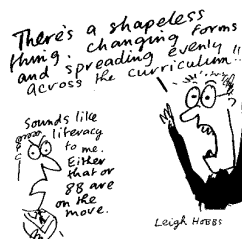 There's a shapeless
thing. changing forms
and spreading evenly!!
across the curriculum!!
Sounds like
literacy
to me.
Either
that or
8B are
on the
move.
Leigh HOBBS